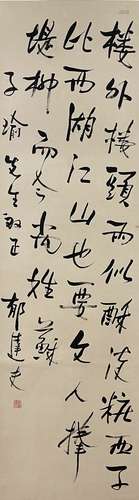 樓外樓頭雨似酥淡粧西子
比西湖江山也要文人捧
堤柳而今尚姓蘇
子瑜先生教正 郁達夫